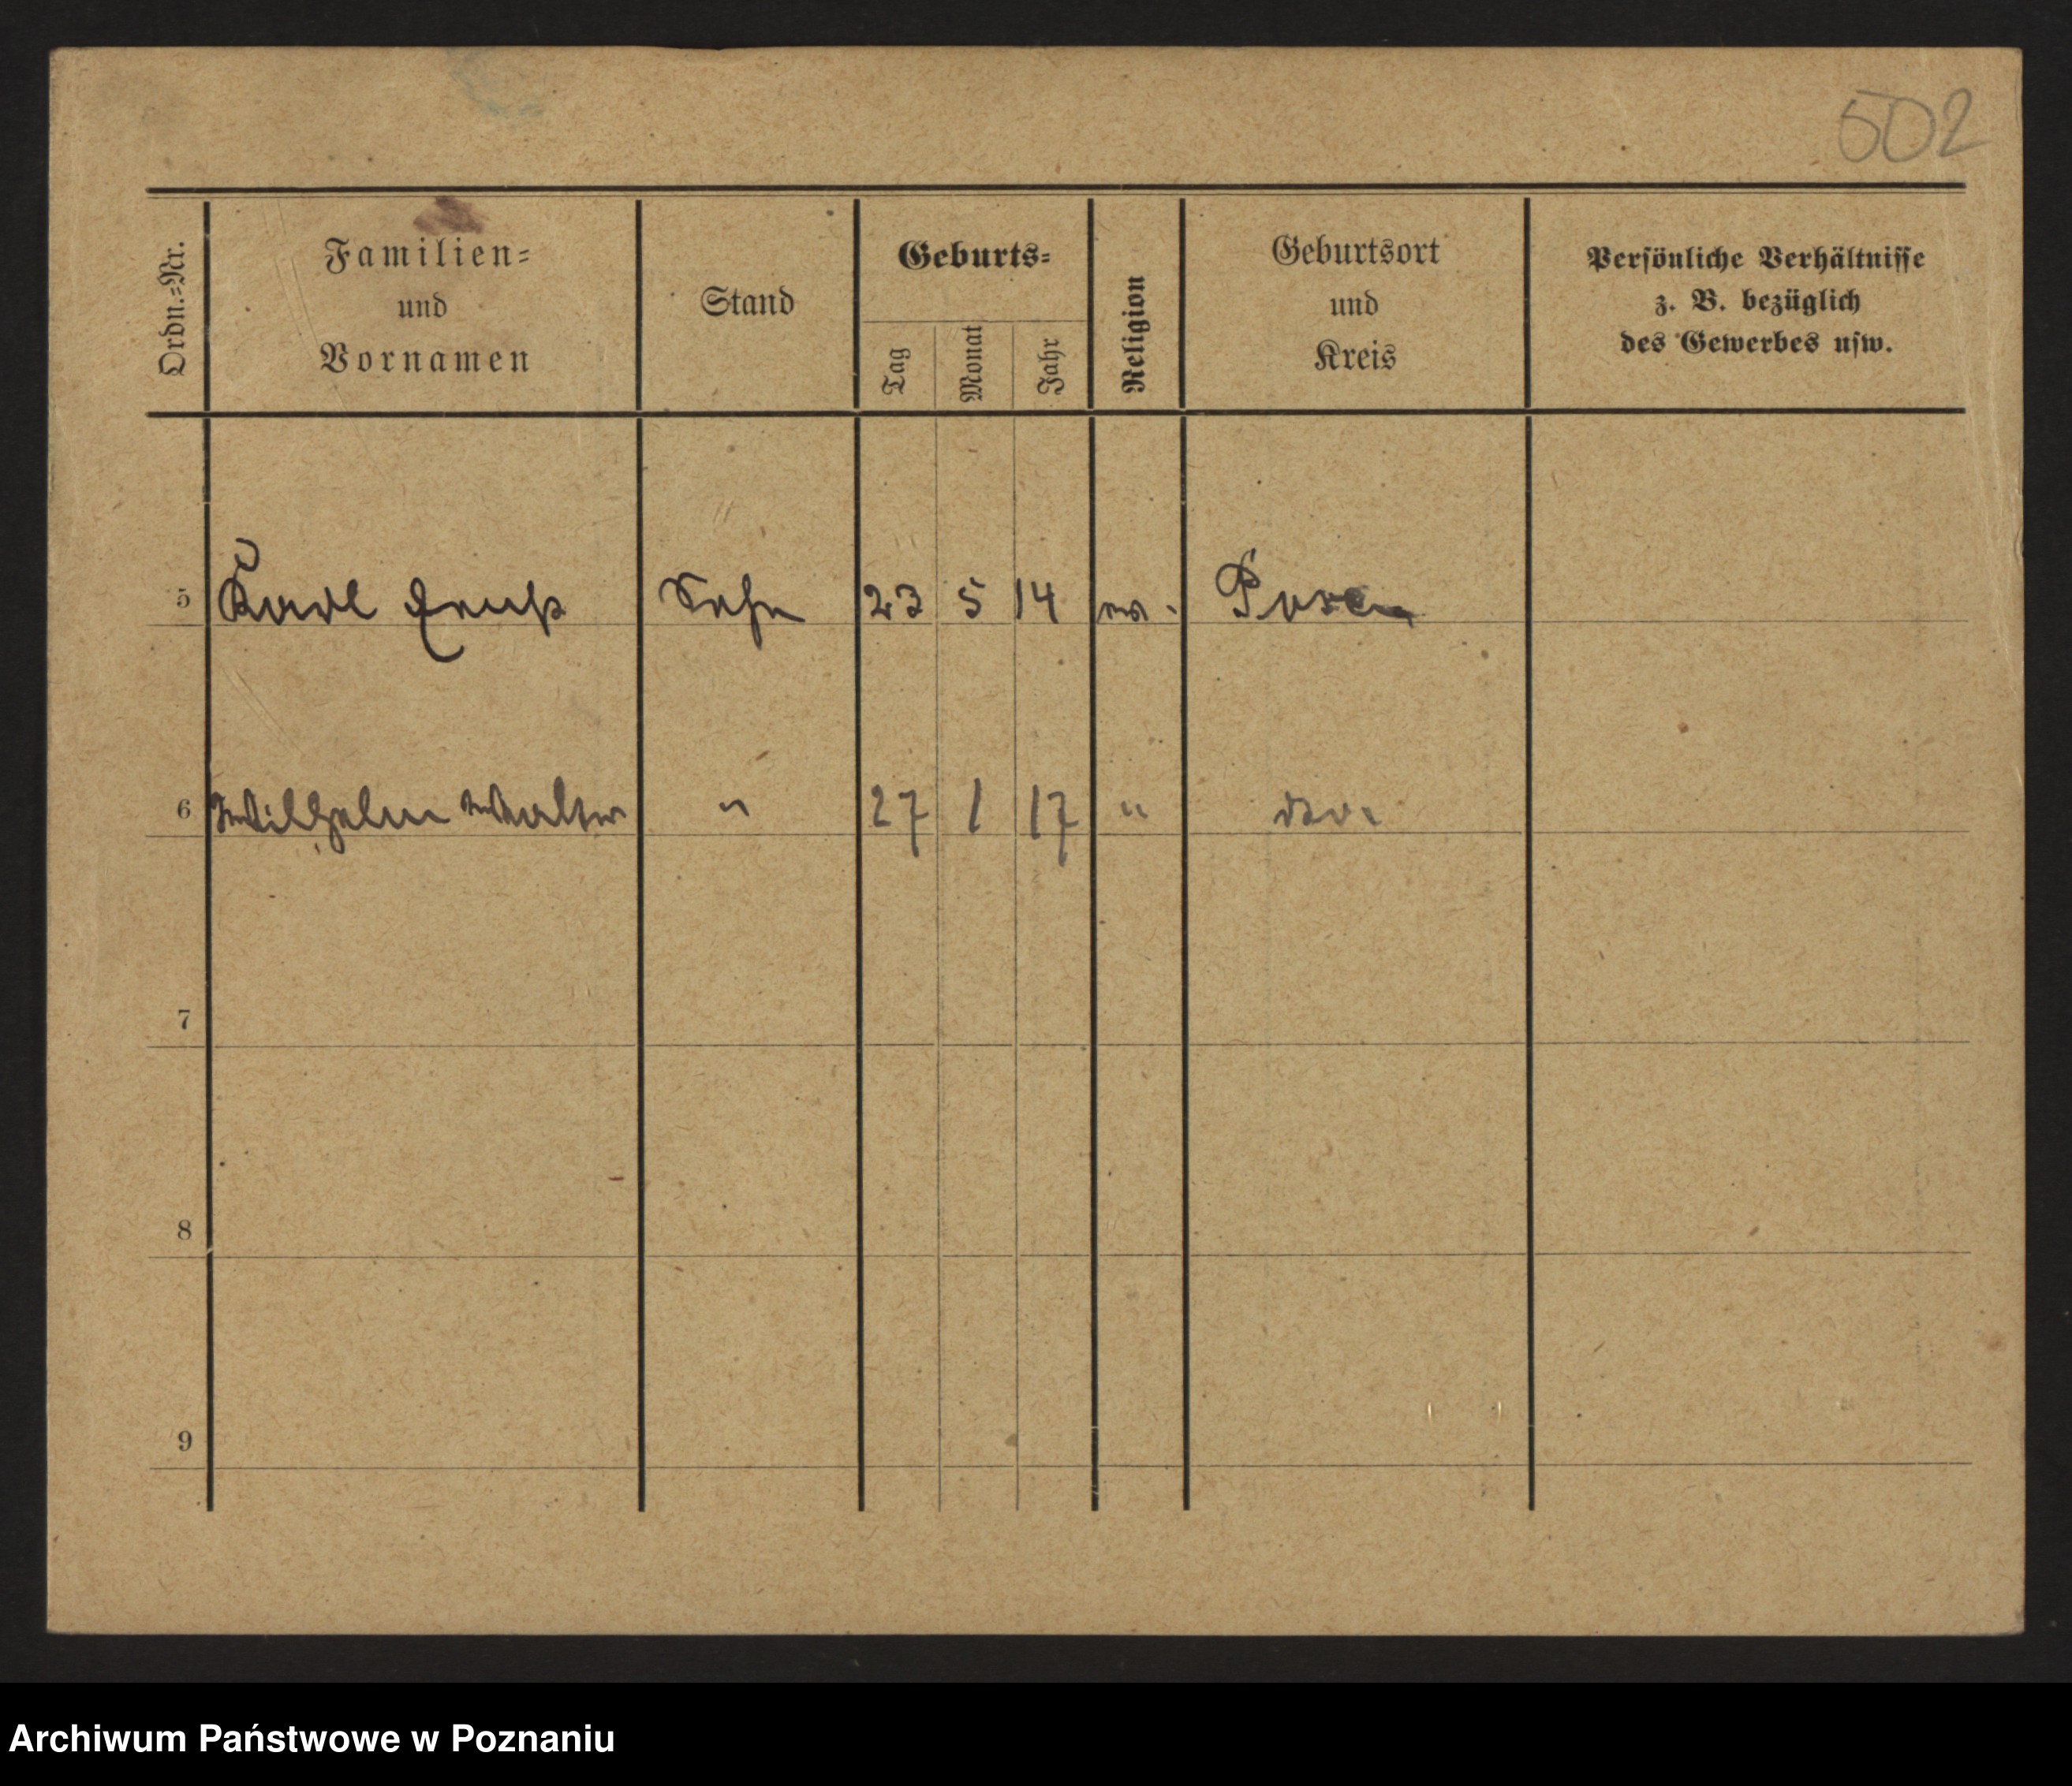 502
Ordn.=Nr.
Familien=
und
Vornamen
Stand
Geburts=
Tag
Monat
Jahr
Religion
Geburtsort
und
Kreis
Persönliche Verhältnisse
z. B. bezüglich
des Gewerbes usw.
5 Karl Ernst Sohn 23 5 14 ev. Posen
6 Wilhelm Walter " 27 1 17 " dto.
7
8
9
Archiwum Państwowe w Poznaniu